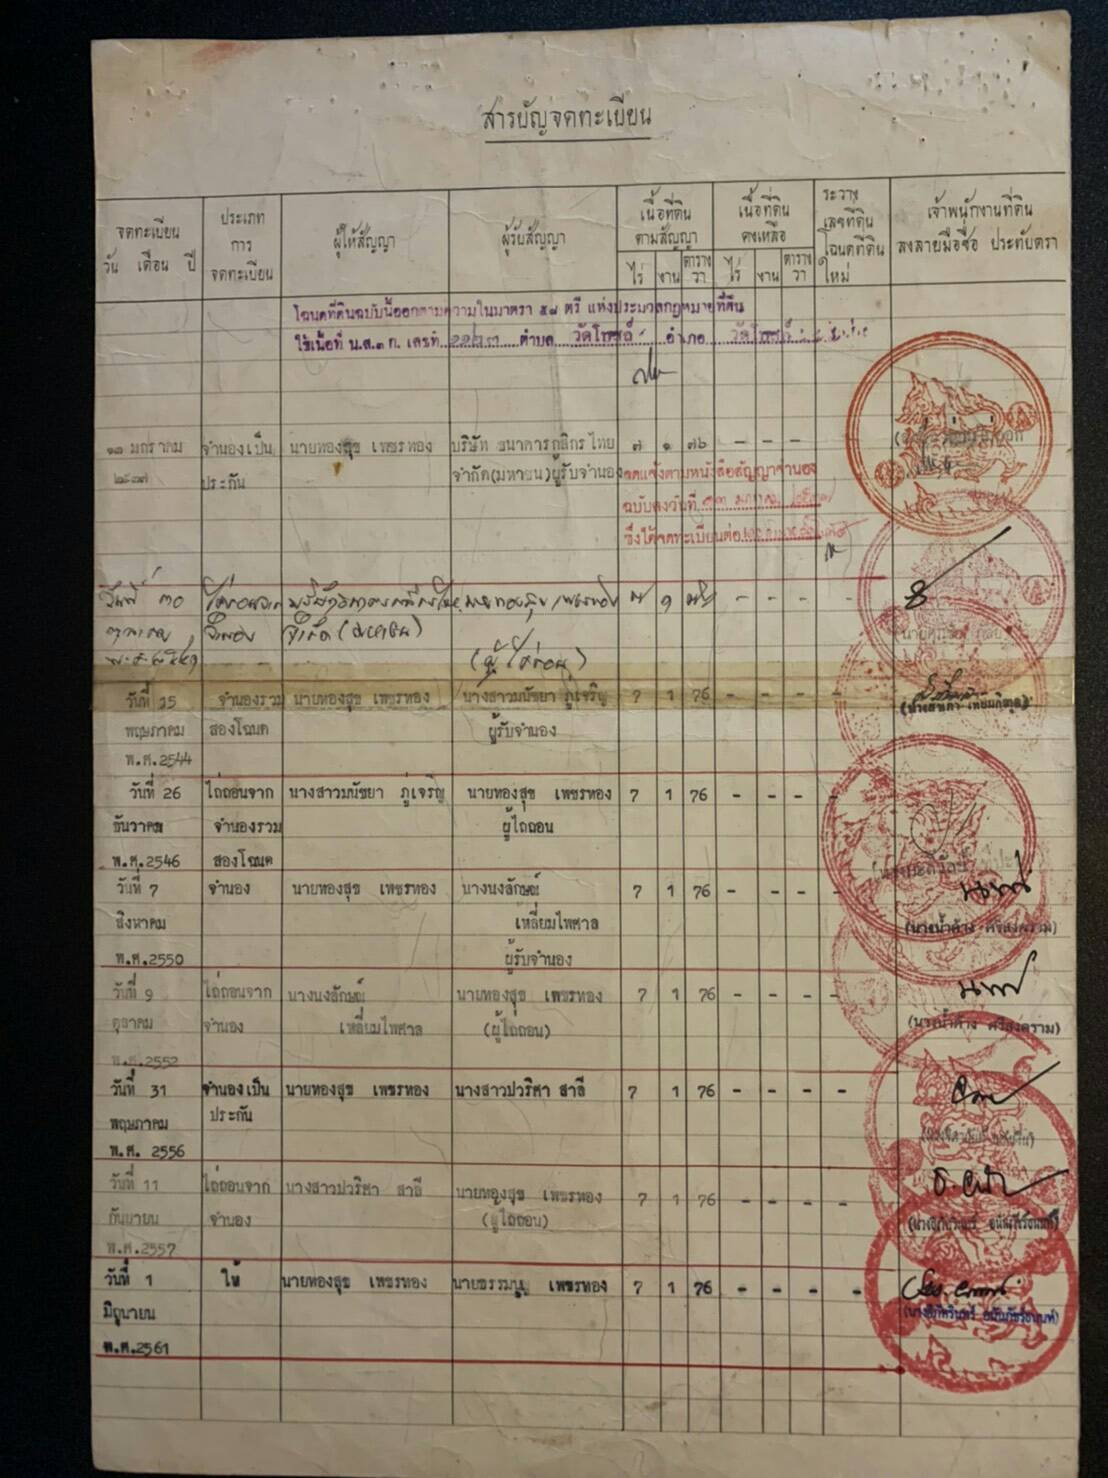 สารบัญจดทะเบียน
จดทะเบียน
วัน เดือน ปี
ประเภท
การ
จดทะเบียน
ผู้ให้สัญญา
ผู้รับสัญญา
เนื้อที่ดิน
ตามสัญญา
ไร่ งาน ตาราง
วา
เนื้อที่ดิน
คงเหลือ
ไร่ งาน ตาราง
วา
ระวาง
เลขที่ดิน
โฉนดที่ดิน
ใหม่
เจ้าพนักงานที่ดิน
ลงลายมือชื่อ ประทับตรา
โฉนดที่ดินฉบับนี้ออกตามความในมาตรา ๕๘ ตรี แห่งประมวลกฎหมายที่ดิน
ใช้เนื้อที่ น.ส.๓ ก. เลขที่ ตำบล วัดโบสถ์ อำเภอ วัดโบสถ์
๑๓ มกราคม จำนองเป็น นายทองสุข เพชรทอง บริษัท ธนาคารกสิกรไทย ๗ ๑ ๗๖ - - -
๒๕๓๗ ประกัน จำกัด(มหาชน)ผู้รับจำนอง
จดแจ้งตามหนังสือสัญญาจำนอง
ฉบับลงวันที่ ๑๓ มกราคม ๒๕๓๗
ซึ่งได้จดทะเบียนต่อ
วันที่ ๓๐ ไถ่ถอนจาก บริษัทธนาคารกสิกรไทย นายทองสุข เพชรทอง ๗ ๑ ๗๖ - - - -
ตุลาคม จำนอง จำกัด (มหาชน)
พ.ศ.๒๕๔๑ (ผู้ไถ่ถอน)
วันที่ 15 จำนองรวม นายทองสุข เพชรทอง นางสาวมนัชยา ภู่เจริญ 7 1 76 - - - -
พฤษภาคม สองโฉนด ผู้รับจำนอง
พ.ศ.2544
วันที่ 26 ไถ่ถอนจาก นางสาวมนัชยา ภู่เจริญ นายทองสุข เพชรทอง 7 1 76 - - - -
ธันวาคม จำนองรวม ผู้ไถ่ถอน
พ.ศ.2546 สองโฉนด
วันที่ 7 จำนอง นายทองสุข เพชรทอง นางนงลักษณ์ 7 1 76 - - - -
สิงหาคม เหลี่ยมไพศาล (นางน้ำค้าง ศรีสงคราม)
พ.ศ.2550 ผู้รับจำนอง
วันที่ 9 ไถ่ถอนจาก นางนงลักษณ์ นายทองสุข เพชรทอง 7 1 76 - - - -
ตุลาคม จำนอง เหลี่ยมไพศาล (ผู้ไถ่ถอน) (นางน้ำค้าง ศรีสงคราม)
พ.ศ.2552
วันที่ 31 จำนองเป็น นายทองสุข เพชรทอง นางสาวปวริศา สาลี 7 1 76 - - - -
พฤษภาคม ประกัน
พ.ศ. 2556
วันที่ 11 ไถ่ถอนจาก นางสาวปวริศา สาลี นายทองสุข เพชรทอง 7 1 76 - - - -
กันยายน จำนอง (ผู้ไถ่ถอน)
พ.ศ.2557
วันที่ 1 ให้ นายทองสุข เพชรทอง นายธรรมนูญ เพชรทอง 7 1 76 - - - -
มิถุนายน
พ.ศ.2561